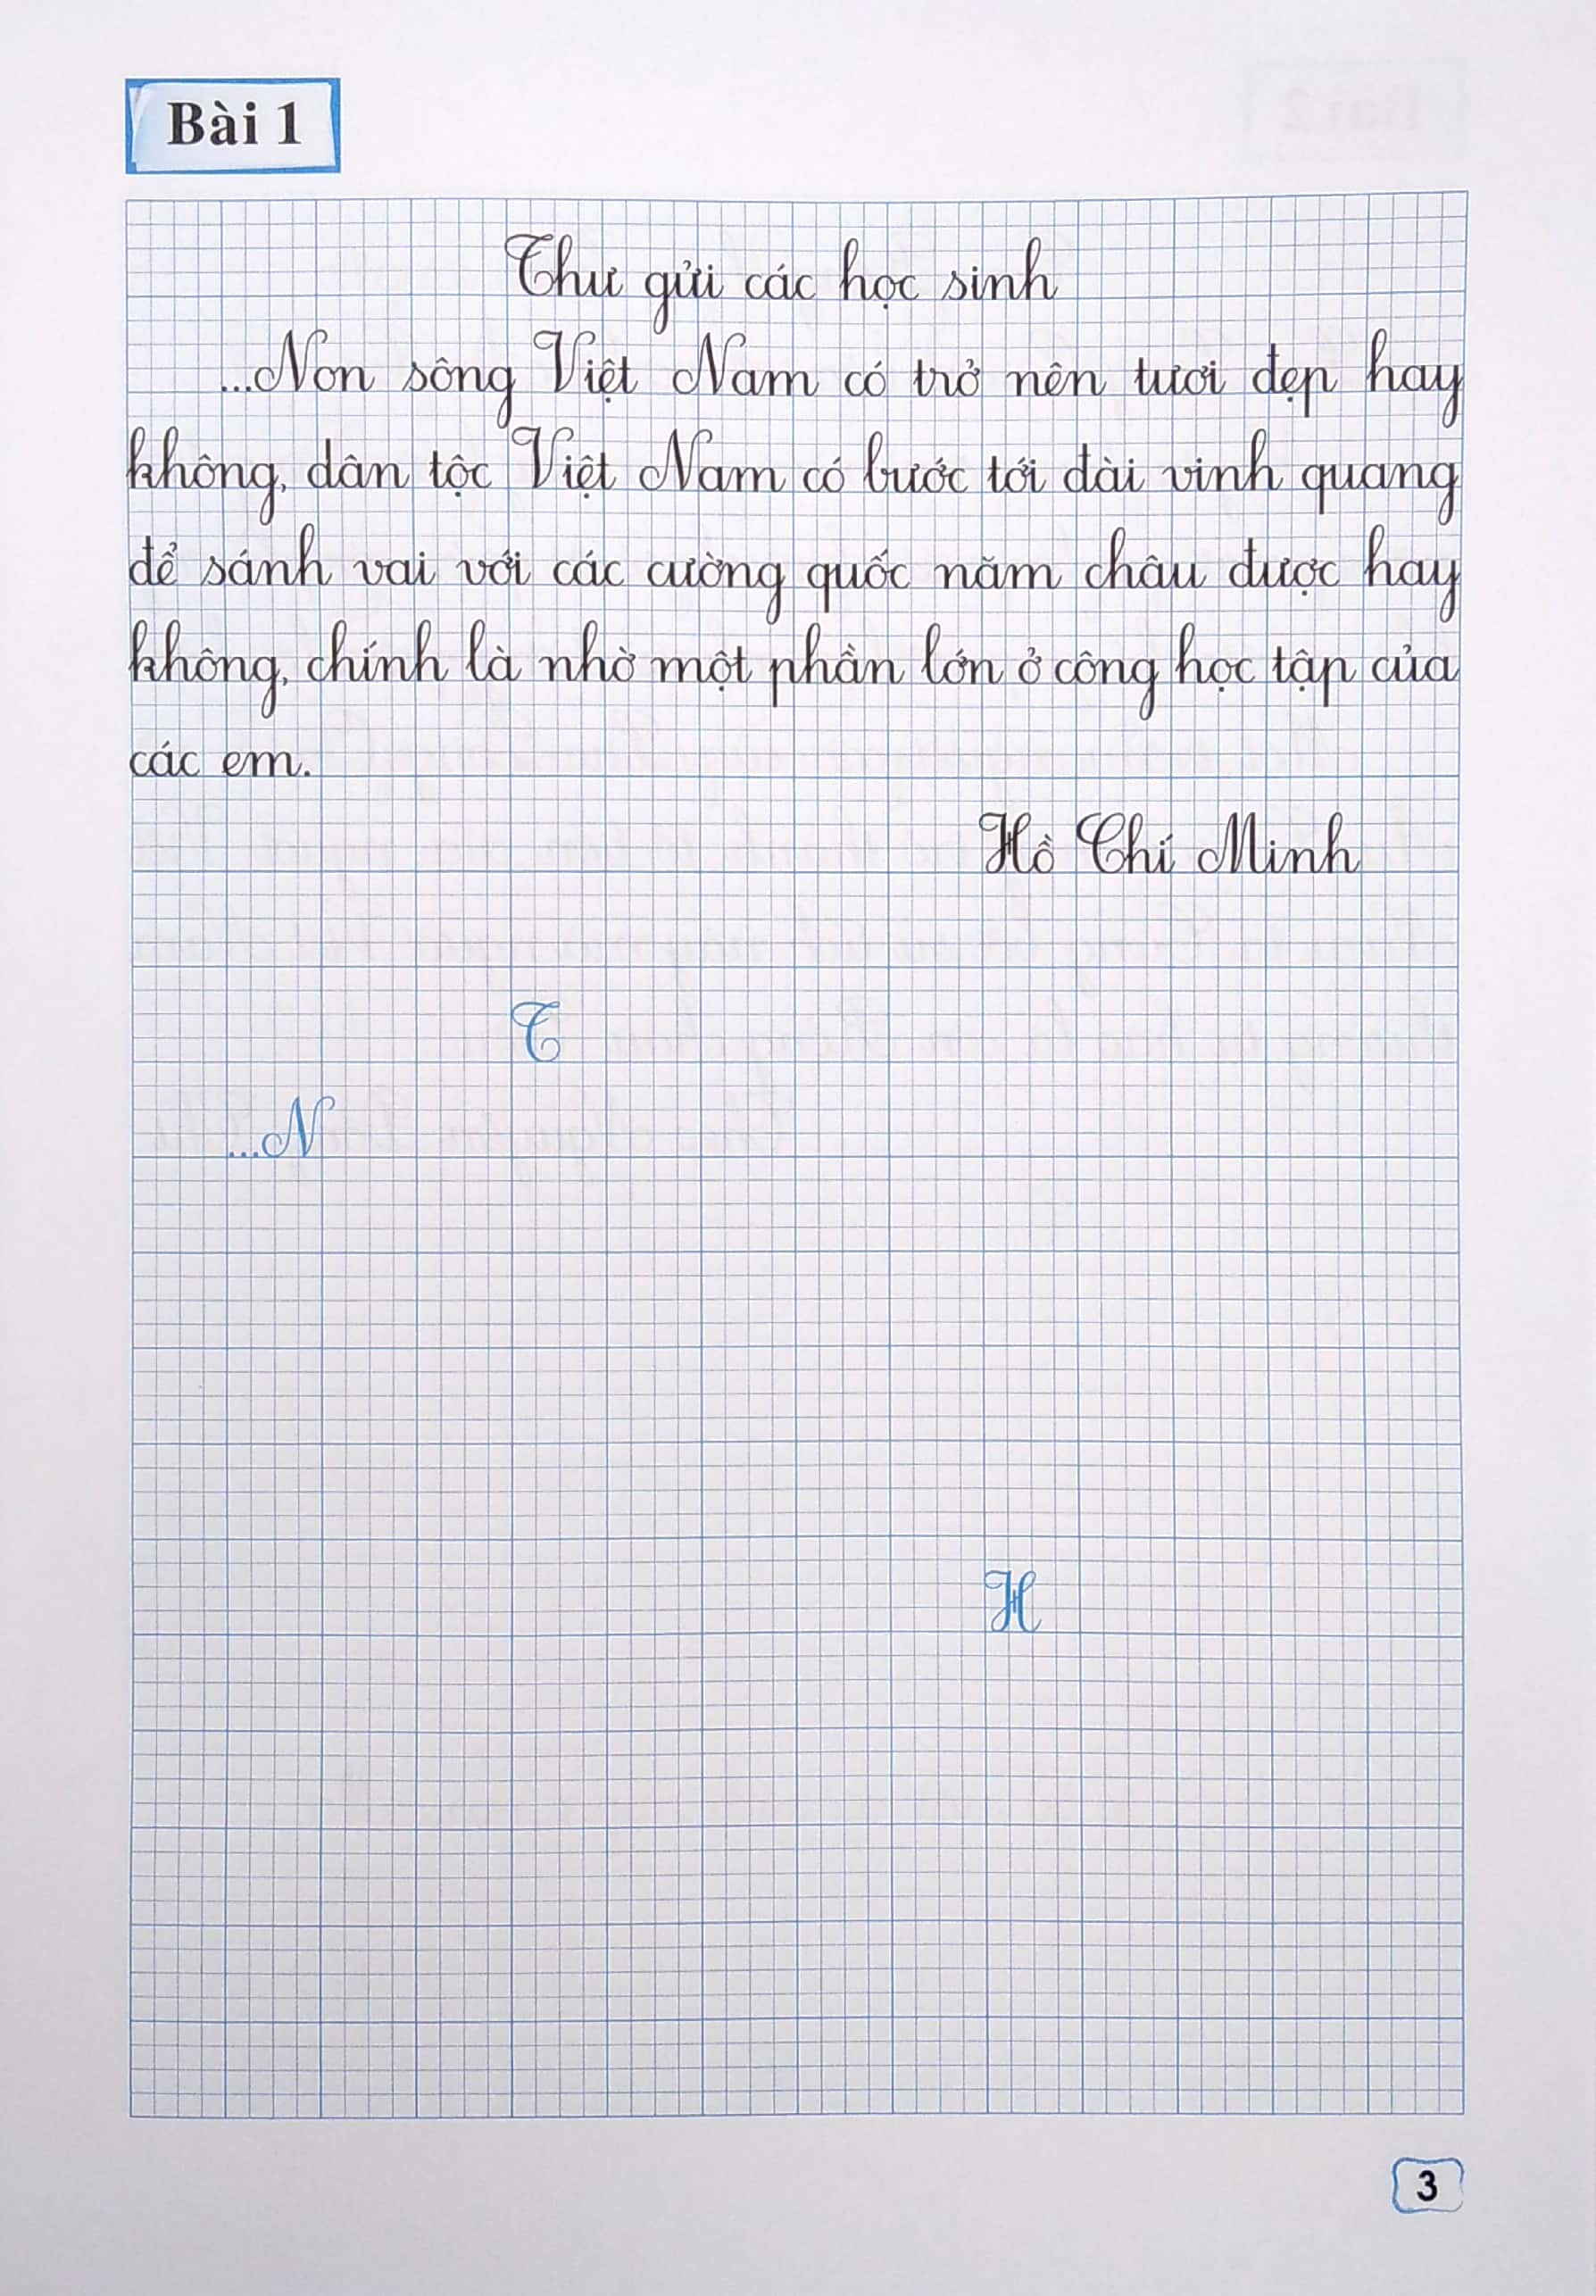 Bài 1
Thư gửi các học sinh
...Non sông Việt Nam có trở nên tươi đẹp hay
không, dân tộc Việt Nam có bước tới đài vinh quang
để sánh vai với các cường quốc năm châu được hay
không, chính là nhờ một phần lớn ở công học tập của
các em.
Hồ Chí Minh
T
...N
H
3